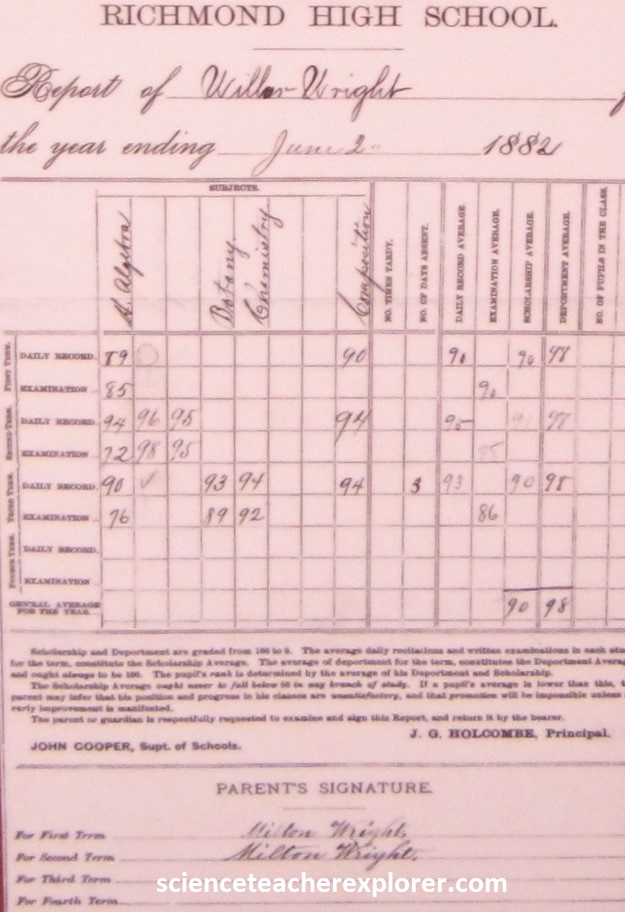 RICHMOND HIGH SCHOOL.
Report of Wilbur Wright
the year ending June 2 1882
SUBJECTS.
H. Algebra Botany. Chemistry. Composition NO. TIMES TARDY. NO. OF DAYS ABSENT. DAILY RECORD AVERAGE. EXAMINATION AVERAGE. SCHOLARSHIP AVERAGE. DEPORTMENT AVERAGE. NO. OF PUPILS IN THE CLASS.
FIRST TERM. DAILY RECORD. 89 90 90 90 98
EXAMINATION 85 90
SECOND TERM. DAILY RECORD. 94 96 95 94 95 91 98
EXAMINATION 72 98 95 85
THIRD TERM. DAILY RECORD. 90 ✓ 93 94 94 3 93 90 98
EXAMINATION 76 89 92 86
FOURTH TERM. DAILY RECORD.
EXAMINATION
GENERAL AVERAGE FOR THE YEAR 90 98
Scholarship and Deportment are graded from 100 to 0. The average daily recitations and written examinations in each
for the term, constitute the Scholarship Average. The average of deportment for the term, constitutes the Deportment
and ought always to be 100. The pupil's rank is determined by the average of his Deportment and Scholarship.
The Scholarship Average ought never to fall below 80 in any branch of study. If a pupil's average is lower than this,
parent may infer that his position and progress in his classes are unsatisfactory, and that promotion will be impossible unless
early improvement is manifested.
The parent or guardian is respectfully requested to examine and sign this Report, and return it by the bearer.
J. G. HOLCOMBE, Principal.
JOHN COOPER, Supt. of Schools.
PARENT'S SIGNATURE.
For First Term Milton Wright.
For Second Term Milton Wright.
For Third Term
For Fourth Term
scienceteacherexplorer.com